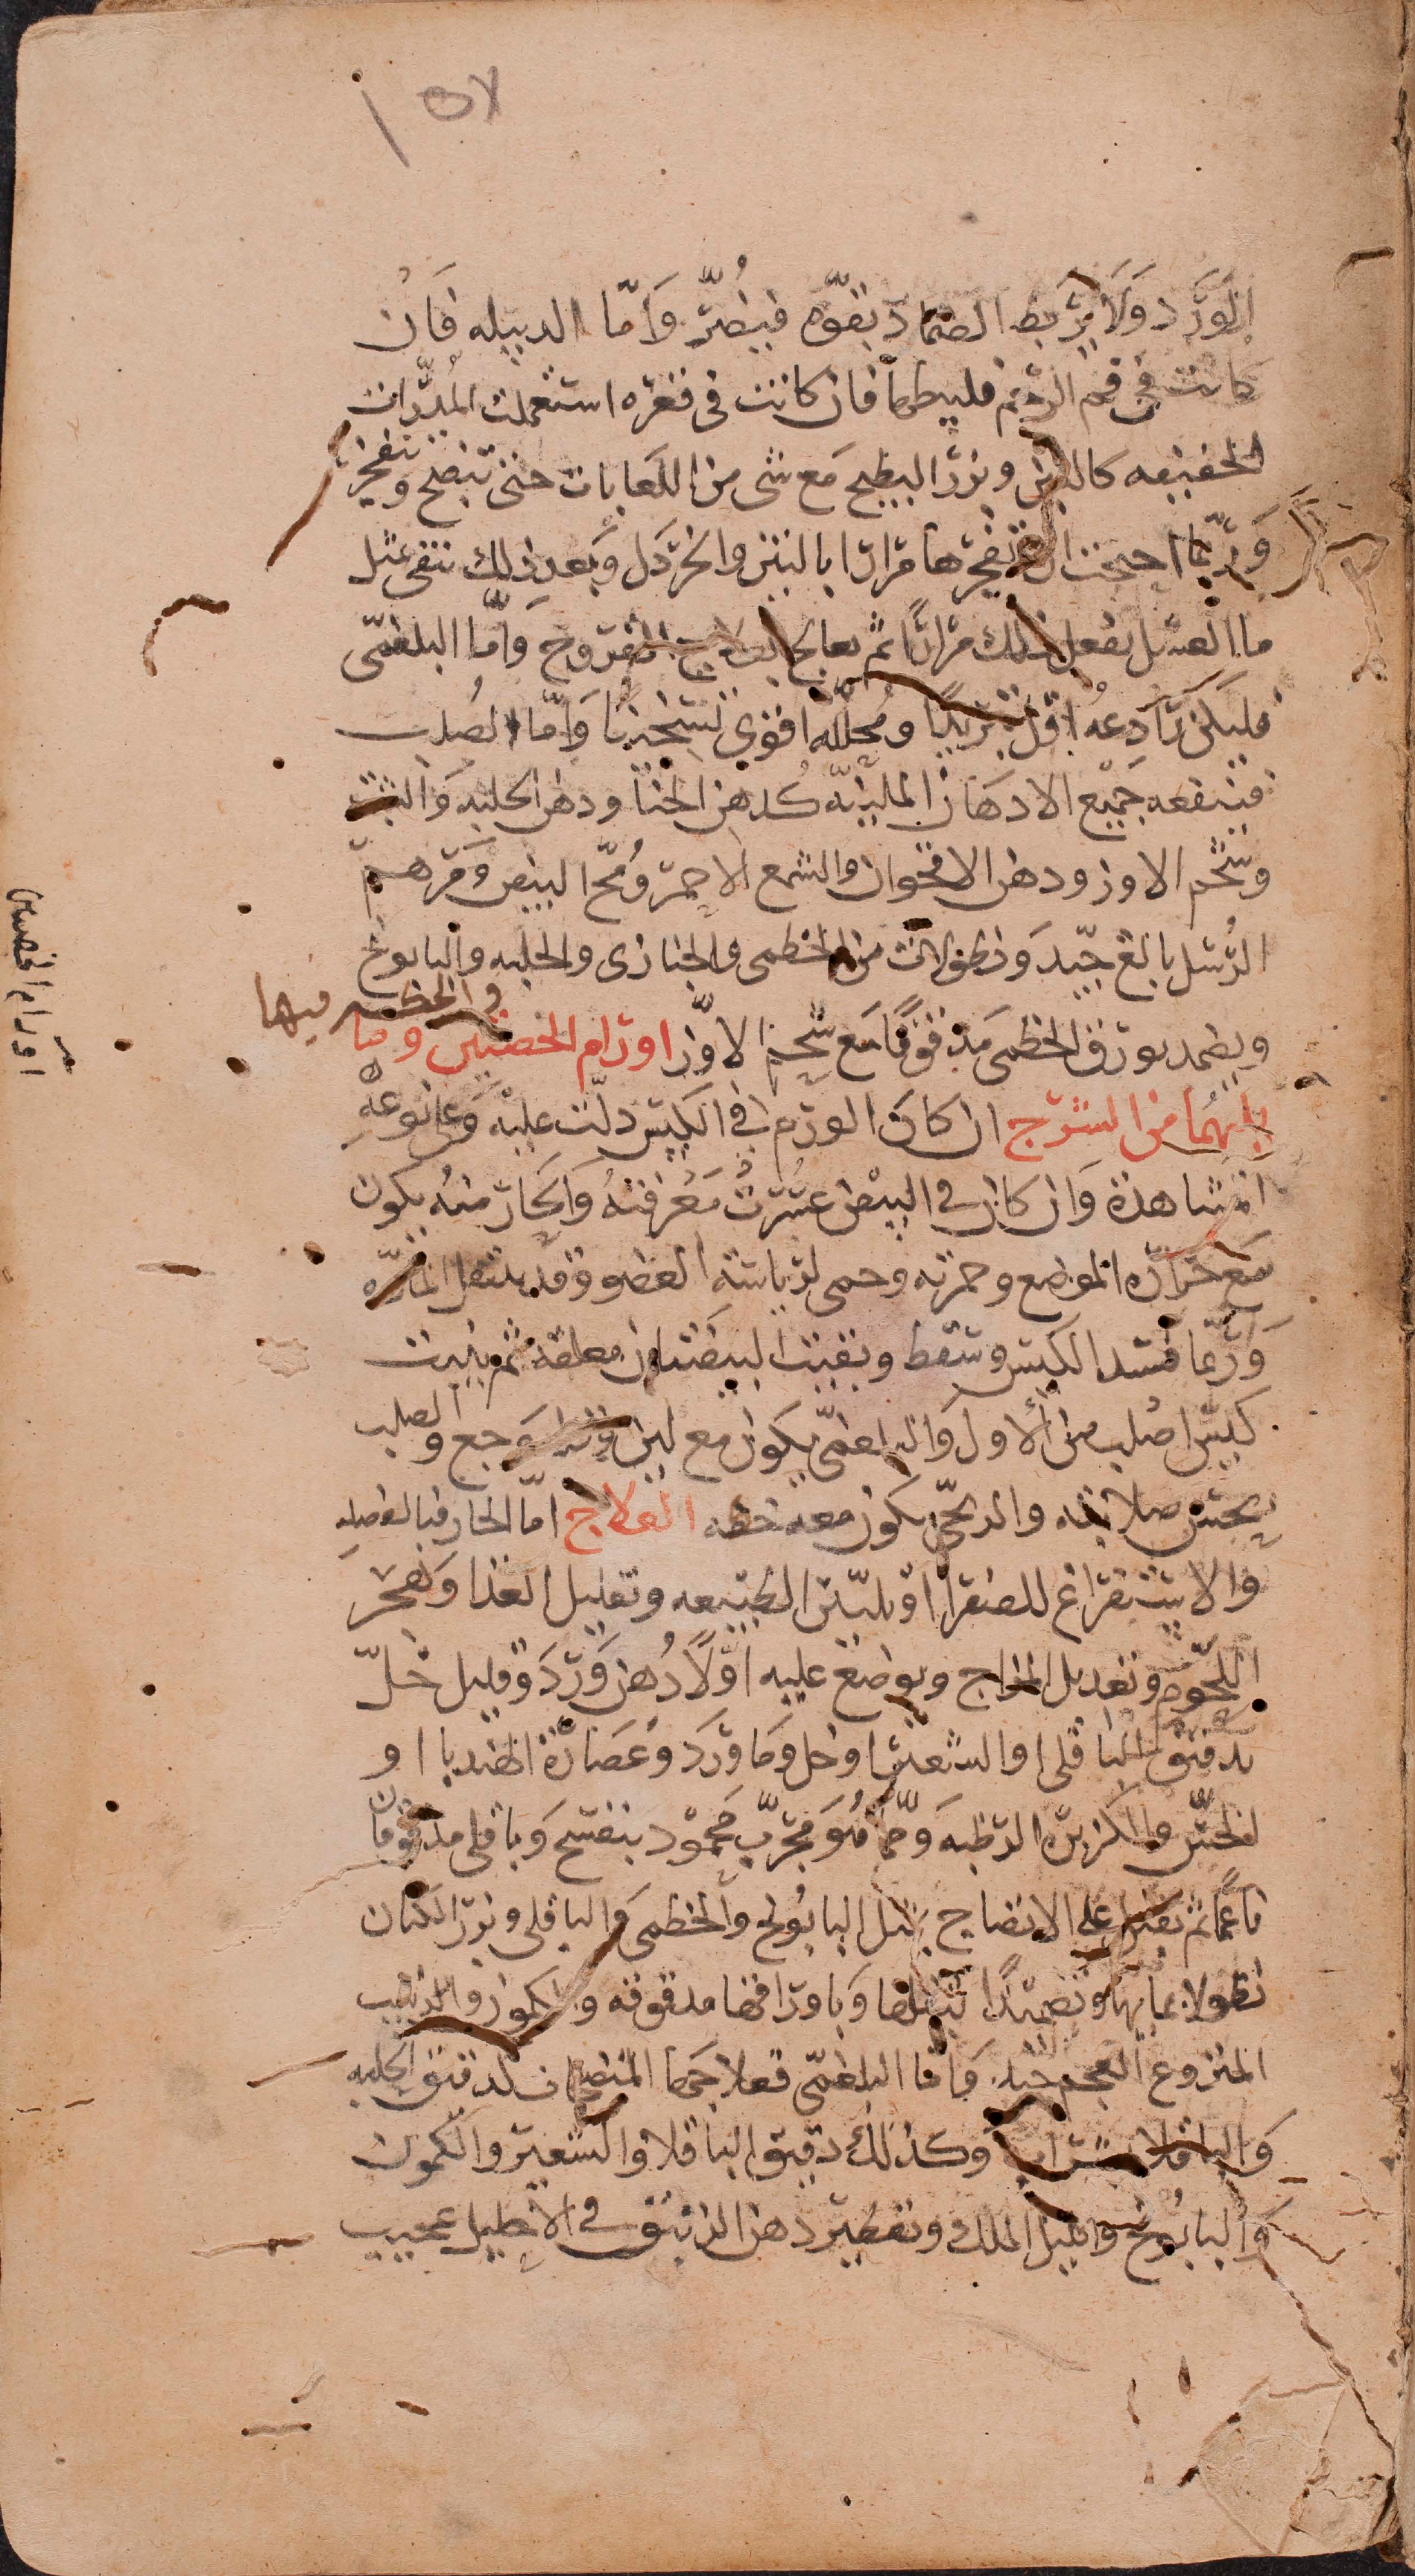 ١٥٧
الورد ولا يربط الضماد بقوة فيضر واما الدبيله فان
كانت فى فم الرحم فليبطها فان كانت فى قعره استعملت المدرات
الخفيفه كاللبن وبزر البطيخ مع شى من اللعابات حتى تنضج وتنفجر
وربما احتجت الى تفجرها مرارا بالتين والخردل وبعد ذلك تنقى بمثل
ما العسل يفعل ذلك مرارا ثم يعالج بعلاج القروح واما البلغمى
فليكن رادعه اقل تبريدا ومحلله اقوى تسخينا واما الصلب
فينفعه جميع الادهان الملينه كدهن الحنا ودهن الحلبه والشبت
وشحم الاوز ودهن الاقحوان والشمع الاحمر ومح البيض ومرهم
الرسل بالغ جيد ونطولات من الخطمى والخبازى والحلبه والبابونج
ويضمد بورق الخطمى مدقوقا مع شحم الاوز اورام الخصيتين وما
يليهما من الشرج ان كان الورم فى الكيس دلت عليه وعلى نوعه
المشاهدة وان كان فى البيض عسرت معرفته والحار منه يكون
مع حرارة الموضع وحمرته وحمى لرياسة العضو وقد ينتقل
وربما فسد الكيس وسقط وبقيت البيضتان معلقة ثم ينبت
كيس اصلب من الاول والبلغمى يكون مع لين وقلة وجع والصلب
يحس صلابته والريحى يكون معه خفه العلاج اما الحار فبالفصد
والاستفراغ للصفرا او تليين الطبيعه وتقليل الغذا وهجر
اللحوم وتعديل المزاج ويوضع عليه اولا دهن ورد وقليل خل
بدقيق الباقلى والشعير او خل وما ورد وعصارة الهندبا او
الخس والكزبرة الرطبه ومما هو مجرب محمود بنفسج وباقلى مدقوقان
ناعما ثم يقبل على الانضاج بمثل البابونج والخطمى والباقلى وبزر الكتان
نطولا بمايها وتضميدا بثفلها وباوراقها مدقوقه والكمون والزبيب
المنزوع العجم جيد واما البلغمى فعلاجه المنضجات كدقيق الحلبه
والباقلا بشراب وكذلك دقيق الباقلا والشعير والكمون
والبابونج واكليل الملك وتقطير دهن الزنبق فى الاحليل عجيب
اورام الخصيتين